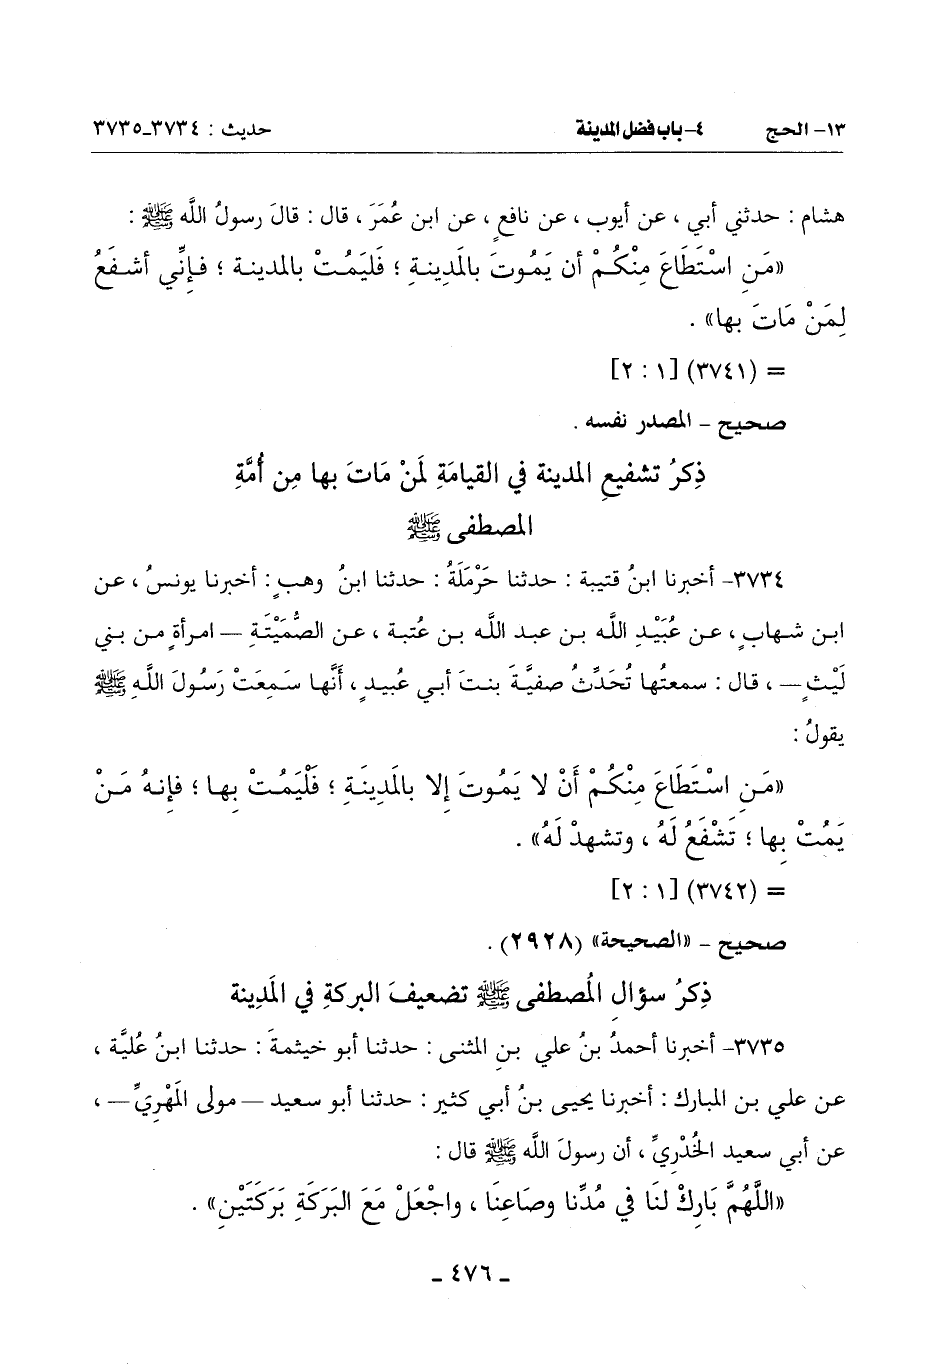 ١٣- الحج ٤- باب فضل المدينة حديث : ٣٧٣٤-٣٧٣٥
هشام : حدثني أبي ، عن أيوب ، عن نافعٍ ، عن ابن عُمَرَ ، قال : قالَ رسولُ اللَّه ﷺ :
«مَنِ اسْتَطَاعَ مِنْكُمْ أن يَمُوتَ بالَمدِينةِ ؛ فَليَمُتْ بالمدينة ؛ فإنِّي أشفَعُ
لِمَنْ مَاتَ بها» .
= (٣٧٤١) [١ : ٢]
صحيح - المصدر نفسه .
ذِكرُ تشفيعِ المدينة في القيامَةِ لَمنْ مَاتَ بها مِن أُمَّةِ
المصطفى ﷺ
٣٧٣٤- أخبرنا ابنُ قتيبة : حدثنا حَرْمَلَةُ : حدثنا ابنُ وهبٍ : أخبرنا يونسُ ، عن
ابن شهابٍ ، عن عُبَيْدِ اللَّه بن عبد اللَّه بن عُتبة ، عن الصُّمَيْتَةِ — امرأةٍ من بني
لَيْثٍ — ، قال : سمعتُها تُحَدِّثُ صفيَّةَ بنتَ أبي عُبيدٍ ، أنَّها سَمِعَتْ رَسُولَ اللَّهِ ﷺ
يقولُ :
«مَنِ اسْتَطَاعَ مِنْكُمْ أَنْ لا يَمُوتَ إلا بالَمدِينَةِ ؛ فَلْيَمُتْ بِها ؛ فإنهُ مَنْ
يَمُتْ بِها ؛ تَشْفَعُ لَهُ ، وتشهدْ لَهُ» .
= (٣٧٤٢) [١ : ٢]
صحيح - «الصحيحة» (٢٩٢٨) .
ذِكرُ سؤالِ الُمصطفى ﷺ تضعيفَ البركةِ في الَمدِينة
٣٧٣٥- أخبرنا أحمدُ بنُ علي بنِ المثنى : حدثنا أبو خيثمةَ : حدثنا ابنُ عُليَّة ،
عن علي بن المبارك : أخبرنا يحيى بنُ أبي كثير : حدثنا أبو سعيد — مولى الَمهْرِيِّ — ،
عن أبي سعيد الخُدْرِيِّ ، أن رسولَ اللَّه ﷺ قال :
«اللَّهُمَّ بَارِكْ لنَا في مُدِّنا وصَاعِنَا ، واجْعَلْ مَعَ البَرَكَةِ بَرَكَتَيْنِ» .
- ٤٧٦ -